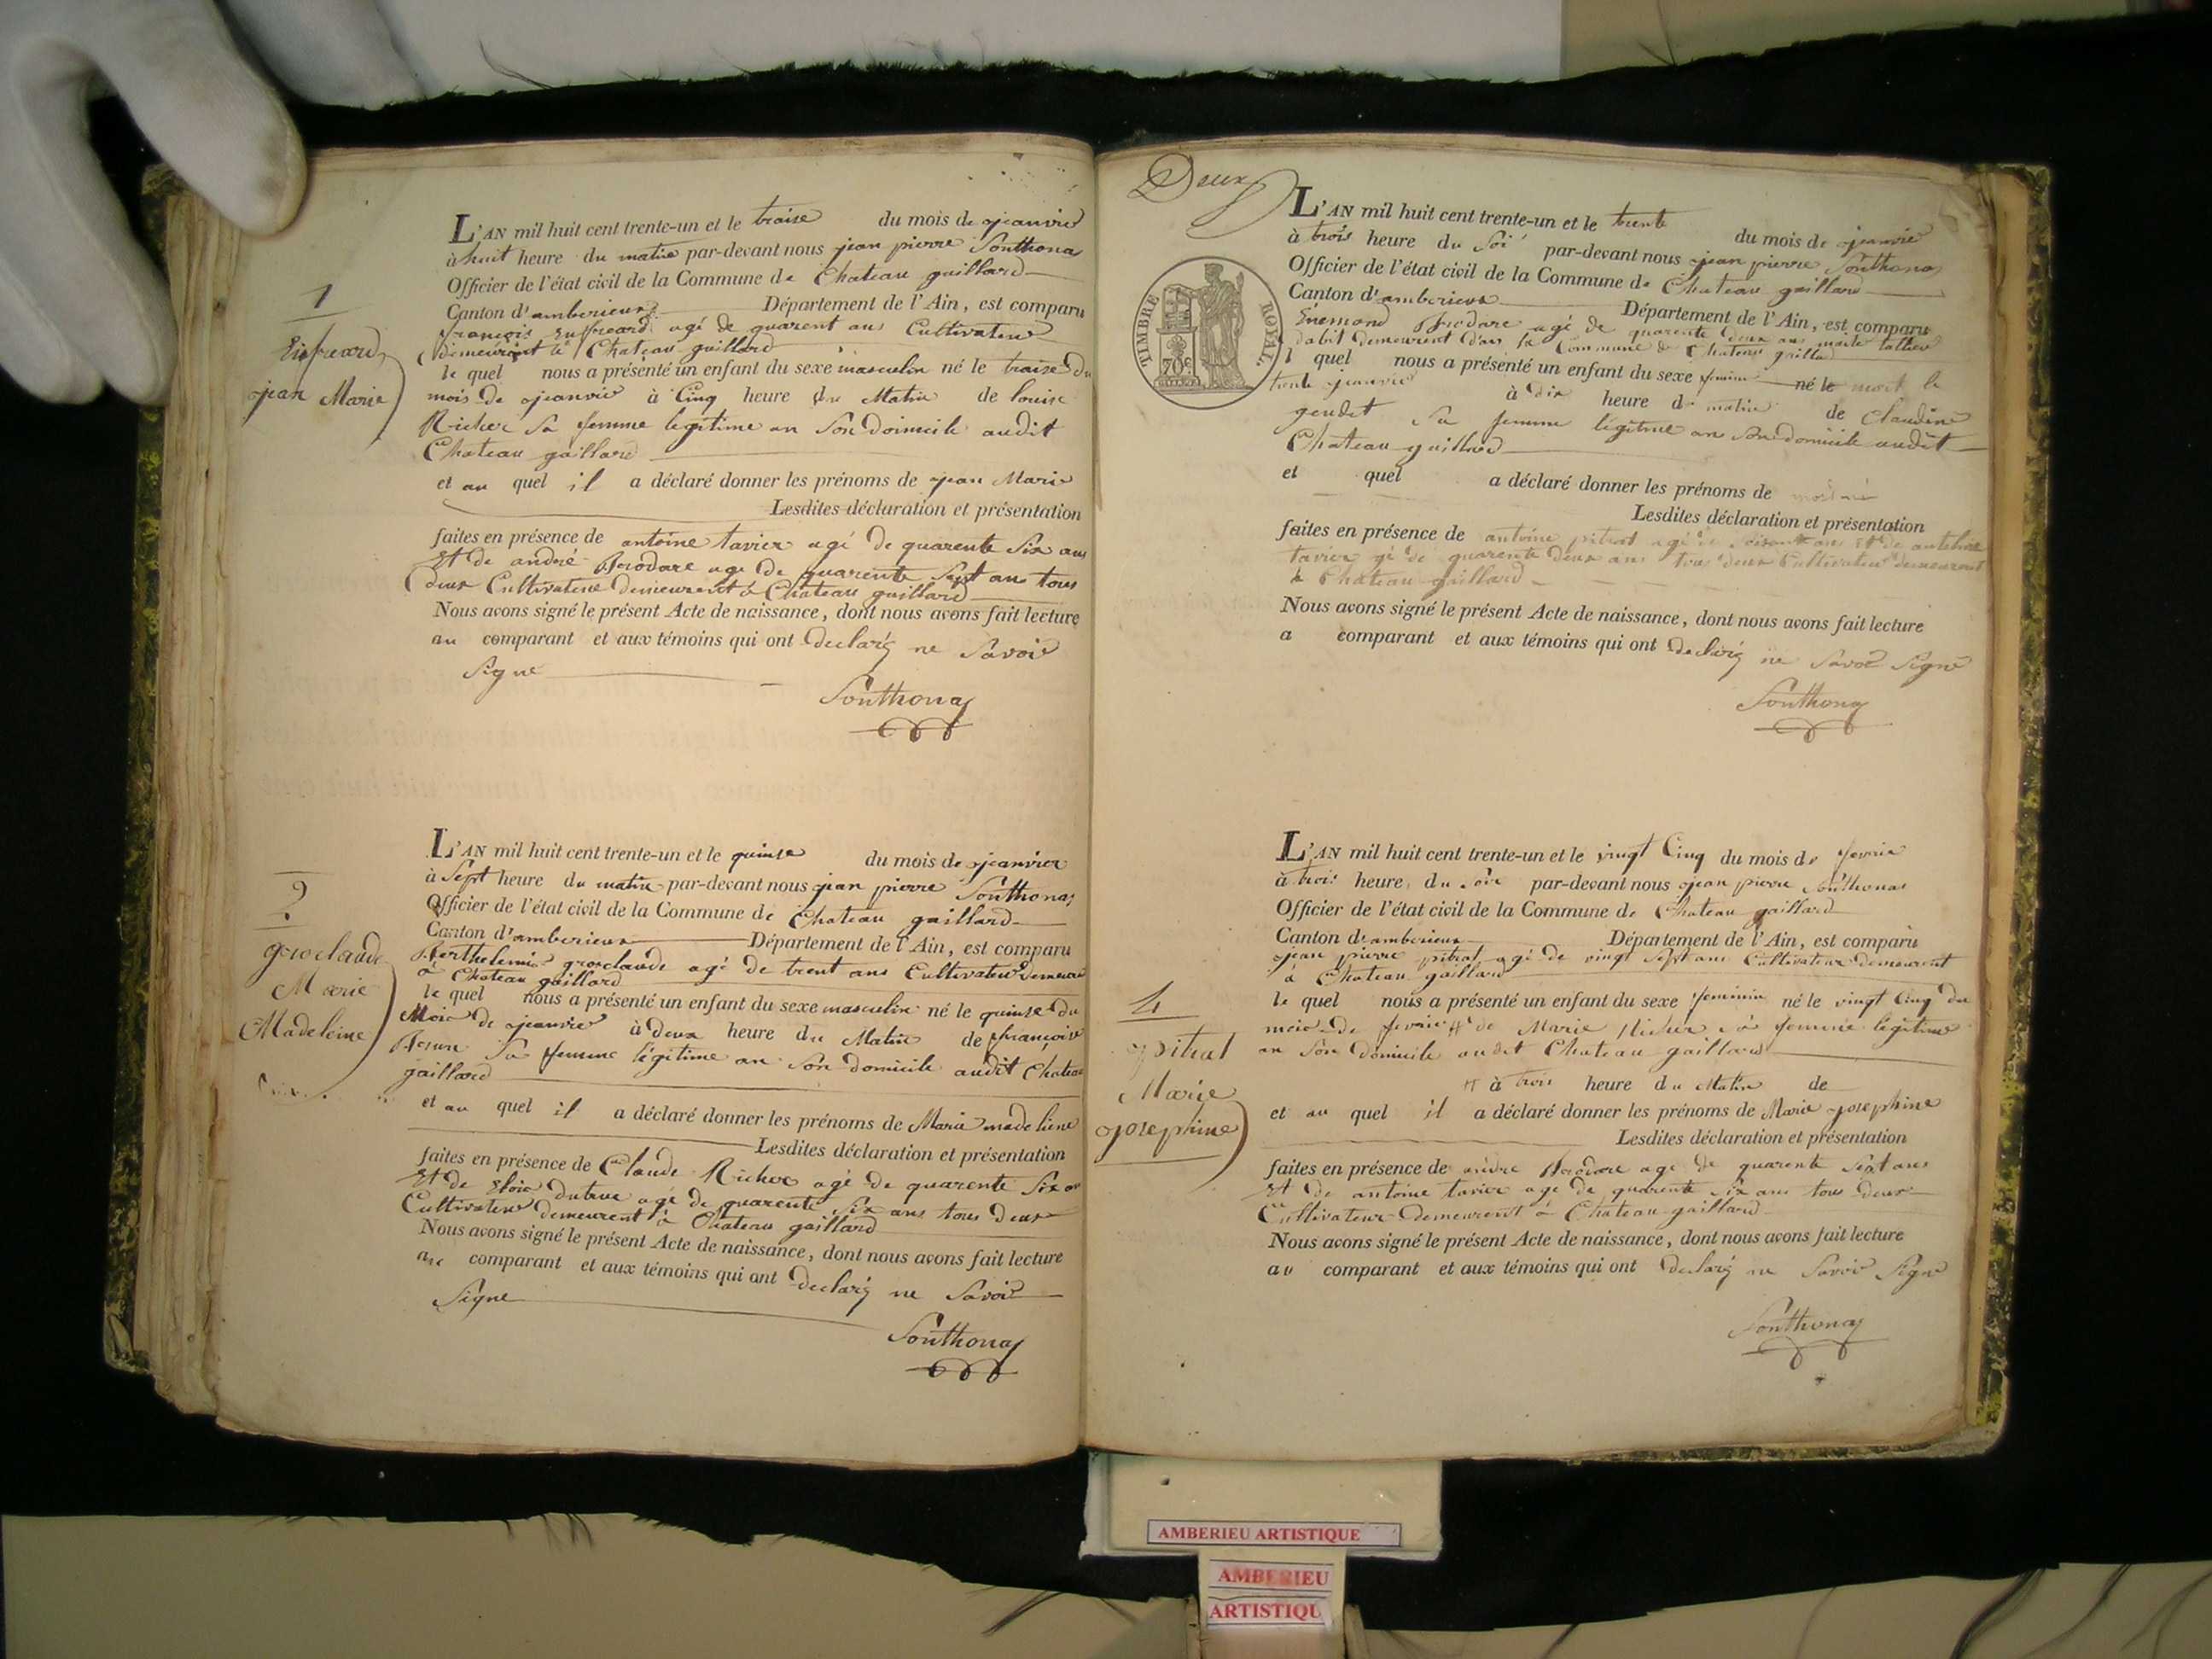 1
Enfreard
jean Marie
L'AN mil huit cent trente-un et le traise du mois de jeanvier
à huit heure du matin par-devant nous jean pierre Sonthonas
Officier de l'état civil de la Commune de Chateau gaillard
Canton d'amberieux Département de l'Ain, est comparu
françois agé de quarent ans Cultivateur
demeurent à Chateau gaillard
le quel nous a présenté un enfant du sexe masculin né le traise du
mois de jeanvier à Cinq heure du Matin de louise
Richer Sa femme legitime an Son domicile audit
Chateau gaillard
et au quel il a déclaré donner les prénoms de jean Marie
Lesdites déclaration et présentation
faites en présence de antoine tavier agé de quarente Six ans
Et de andré Brodare age de quarente Sept ans tous
deux Cultivateur demeurent à Chateau gaillard
Nous avons signé le présent Acte de naissance, dont nous avons fait lecture
au comparant et aux témoins qui ont declaré ne Savoir
Signe
Sonthonas
2
groclaude
Marie
Madeleine
L'AN mil huit cent trente-un et le quinse du mois de jeanvier
à Sept heure du matin par-devant nous jean pierre Sonthonas
Officier de l'état civil de la Commune de Chateau gaillard
Canton d'amberieux Département de l'Ain, est comparu
Berthelemie grosclaude agé de trent ans Cultivateur demeure
à Chateau gaillard
le quel nous a présenté un enfant du sexe masculin né le quinse du
Mois de jeanvier à deux heure du Matin de françoise
Sa femme légitime an Son domicile audit Chateau
gaillard
et au quel il a déclaré donner les prénoms de Marie madeliene
Lesdites déclaration et présentation
faites en présence de Claude Richer agé de quarente Six an
Et de Eloie dutrue agé de quarente Six ans tous deux
Cultivateur demeurent à Chateau gaillard
Nous avons signé le présent Acte de naissance, dont nous avons fait lecture
au comparant et aux témoins qui ont declaré ne Savoir
Signe
Sonthonas
Deux
TIMBRE ROYAL
70c
L'AN mil huit cent trente-un et le trente du mois de jeanvier
à trois heure du Soi par-devant nous jean pierre Sonthonas
Officier de l'état civil de la Commune de Chateau gaillard
Canton d'amberieux Département de l'Ain, est comparu
Enemond Brodare agé de quarente deux ans tallieur
dabit demeurent dans la Commune de Chateau gaillard
l quel nous a présenté un enfant du sexe femin né le mort le
trente jeanvier à dix heure d matin de Claudine
gendet Sa femme légitime an Son domicile audit
Chateau gaillard
et quel a déclaré donner les prénoms de
Lesdites déclaration et présentation
faites en présence de antoine pitrat agé de ans Et de antoine
tavier gé de quarente deux ans tous deux Cultivateur demeurent
à Chateau gaillard
Nous avons signé le présent Acte de naissance, dont nous avons fait lecture
a comparant et aux témoins qui ont declaré ne Savoir Signé
Sonthonas
4
pitrat
Marie
josephine
L'AN mil huit cent trente-un et le vingt Cinq du mois de fevrie
à trois heure du soir par-devant nous jean pierre Sonthonas
Officier de l'état civil de la Commune de Chateau gaillard
Canton d'amberieux Département de l'Ain, est comparu
jean pierre pitrat agé de vingt Sept ans Cultivateur demeurent
à Chateau gaillard
le quel nous a présenté un enfant du sexe feminin né le vingt Cinq du
mois de fevrie # de Marie Richer Sa femme légitime
an Son domicile audit Chateau gaillard
# à trois heure du Matin de
et au quel il a déclaré donner les prénoms de Marie josephine
Lesdites déclaration et présentation
faites en présence de andre Brodare agé de quarente Sept ans
Et de antoine tavier age de quarente six ans tous deux
Cultivateur demeurent à Chateau gaillard
Nous avons signé le présent Acte de naissance, dont nous avons fait lecture
au comparant et aux témoins qui ont declaré ne Savoir Signe
Sonthonas
AMBERIEU ARTISTIQUE
AMBERIEU
ARTISTIQU